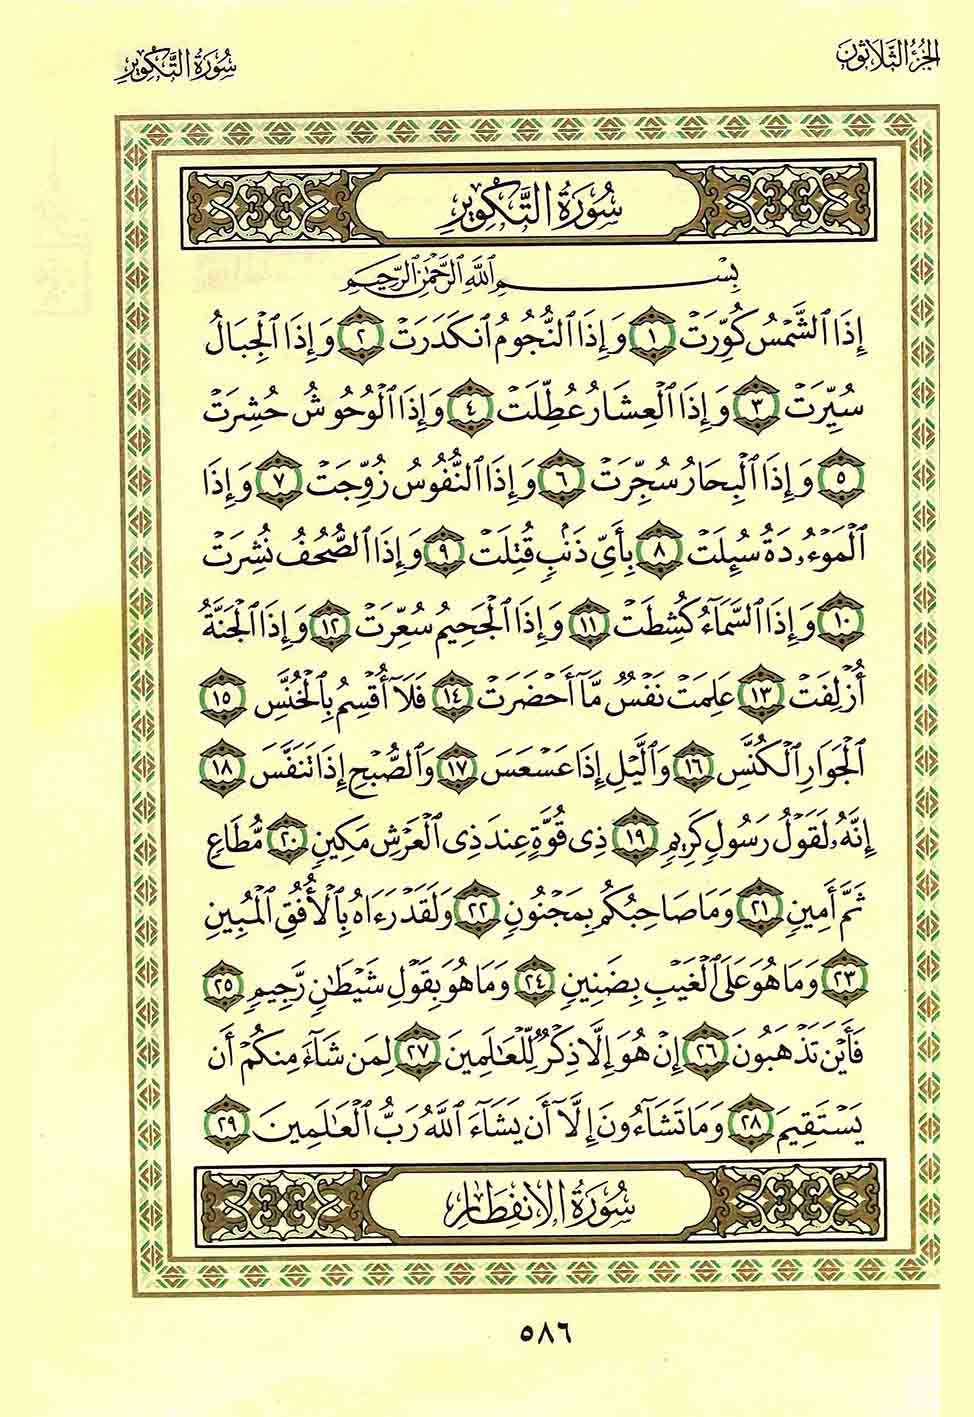 الجزء الثلاثون
سورة التكوير
سُورَةُ التَّكْوِيرِ
بِسْمِ ٱللَّهِ ٱلرَّحْمَٰنِ ٱلرَّحِيمِ
إِذَا ٱلشَّمْسُ كُوِّرَتْ ١ وَإِذَا ٱلنُّجُومُ ٱنكَدَرَتْ ٢ وَإِذَا ٱلْجِبَالُ
سُيِّرَتْ ٣ وَإِذَا ٱلْعِشَارُ عُطِّلَتْ ٤ وَإِذَا ٱلْوُحُوشُ حُشِرَتْ
٥ وَإِذَا ٱلْبِحَارُ سُجِّرَتْ ٦ وَإِذَا ٱلنُّفُوسُ زُوِّجَتْ ٧ وَإِذَا
ٱلْمَوْءُۥدَةُ سُئِلَتْ ٨ بِأَىِّ ذَنۢبٍ قُتِلَتْ ٩ وَإِذَا ٱلصُّحُفُ نُشِرَتْ
١٠ وَإِذَا ٱلسَّمَآءُ كُشِطَتْ ١١ وَإِذَا ٱلْجَحِيمُ سُعِّرَتْ ١٢ وَإِذَا ٱلْجَنَّةُ
أُزْلِفَتْ ١٣ عَلِمَتْ نَفْسٌ مَّآ أَحْضَرَتْ ١٤ فَلَآ أُقْسِمُ بِٱلْخُنَّسِ ١٥
ٱلْجَوَارِ ٱلْكُنَّسِ ١٦ وَٱلَّيْلِ إِذَا عَسْعَسَ ١٧ وَٱلصُّبْحِ إِذَا تَنَفَّسَ ١٨
إِنَّهُۥ لَقَوْلُ رَسُولٍ كَرِيمٍ ١٩ ذِى قُوَّةٍ عِندَ ذِى ٱلْعَرْشِ مَكِينٍ ٢٠ مُّطَاعٍ
ثَمَّ أَمِينٍ ٢١ وَمَا صَاحِبُكُم بِمَجْنُونٍ ٢٢ وَلَقَدْ رَءَاهُ بِٱلْأُفُقِ ٱلْمُبِينِ
٢٣ وَمَا هُوَ عَلَى ٱلْغَيْبِ بِضَنِينٍ ٢٤ وَمَا هُوَ بِقَوْلِ شَيْطَٰنٍ رَّجِيمٍ ٢٥
فَأَيْنَ تَذْهَبُونَ ٢٦ إِنْ هُوَ إِلَّا ذِكْرٌ لِّلْعَٰلَمِينَ ٢٧ لِمَن شَآءَ مِنكُمْ أَن
يَسْتَقِيمَ ٢٨ وَمَا تَشَآءُونَ إِلَّآ أَن يَشَآءَ ٱللَّهُ رَبُّ ٱلْعَٰلَمِينَ ٢٩
سُورَةُ الانفِطَارِ
٥٨٦